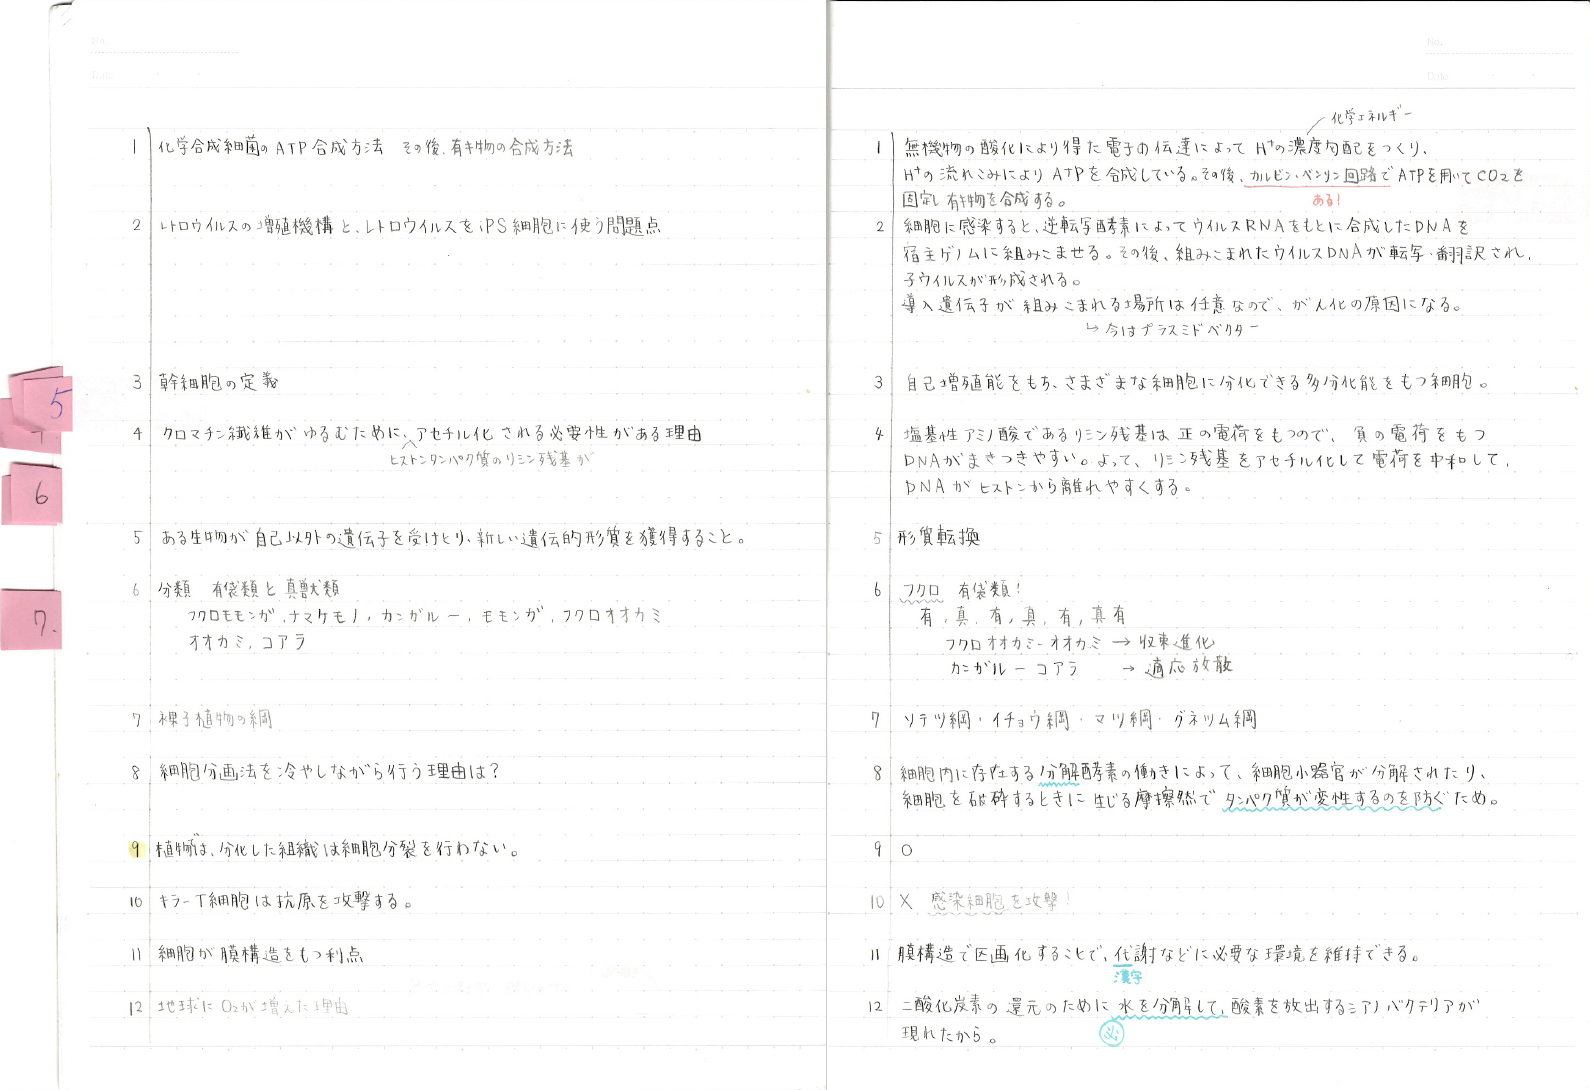 No.
Date
1 化学合成細菌のATP合成方法 その後、有キ物の合成方法
2 レトロウイルスの増殖機構と、レトロウイルスをiPS細胞に使う問題点
3 幹細胞の定義
4 クロマチン繊維がゆるむために、アセチル化される必要性がある理由
ヒストンタンパク質のリシン残基が
5 ある生物が自己以外の遺伝子を受けとり、新しい遺伝的形質を獲得すること。
6 分類 有袋類と真獣類
フクロモモンガ、ナマケモノ、カンガルー、モモンガ、フクロオオカミ
オオカミ、コアラ
7 裸子植物の綱
8 細胞分画法を冷やしながら行う理由は?
9 植物は、分化した組織は細胞分裂を行わない。
10 キラーT細胞は抗原を攻撃する。
11 細胞が膜構造をもつ利点
12 地球にO2が増えた理由
5
6
7.
No.
Date
化学エネルギー
1 無機物の酸化により得た電子の伝達によってH⁺の濃度勾配をつくり、
H⁺の流れこみによりATPを合成している。その後、カルビン・ベンソン回路でATPを用いてCO2を
固定し有キ物を合成する。
ある!
2 細胞に感染すると、逆転写酵素によってウイルスRNAをもとに合成したDNAを
宿主ゲノムに組みこませる。その後、組みこまれたウイルスDNAが転写・翻訳され、
子ウイルスが形成される。
導入遺伝子が組みこまれる場所は任意なので、がん化の原因になる。
↳今はプラスミドベクター
3 自己増殖能をもち、さまざまな細胞に分化できる多分化能をもつ細胞。
4 塩基性アミノ酸であるリシン残基は正の電荷をもつので、負の電荷をもつ
DNAがまきつきやすい。よって、リシン残基をアセチル化して電荷を中和して、
DNAがヒストンから離れやすくする。
5 形質転換
6 フクロ 有袋類!
有、真、有、真、有、真有
フクロオオカミ-オオカミ → 収束進化
カンガルー コアラ → 適応放散
7 ソテツ綱・イチョウ綱・マツ綱・グネツム綱
8 細胞内に存在する分解酵素の働きによって、細胞小器官が分解されたり、
細胞を破砕するときに生じる摩擦熱でタンパク質が変性するのを防ぐため。
9 ○
10 × 感染細胞を攻撃!
11 膜構造で区画化することで、代謝などに必要な環境を維持できる。
漢字
12 二酸化炭素の還元のために水を分解して、酸素を放出するシアノバクテリアが
必
現れたから。